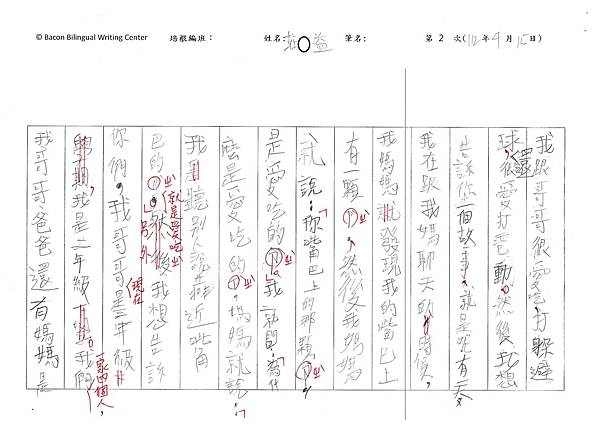 © Bacon Bilingual Writing Center 培根編班： 姓名: 益 筆名: 第 2 次(112年4月15日)
我跟哥哥很愛吃、打躲避
球，還很愛打電動。然後我想
告訴你一個故事，就是呢有一天
我在跟我媽聊天的時候，
我媽媽就發現我的嘴巴上
有一顆ㄗˋ，然後我媽媽
就說：「你嘴巴上的那顆ㄗˋ
是愛吃的ㄗˋ。」我就問：「為什
麼是愛吃的ㄗˋ。」媽媽就說：「
我聽別人說靠近嘴角
巴的ㄗˋ就是愛吃ㄗˋ。」另外然後我想告訴
你們，我哥哥現在是三年級
，我是二年級。我們一家四個人，
我哥哥爸爸還有媽媽是